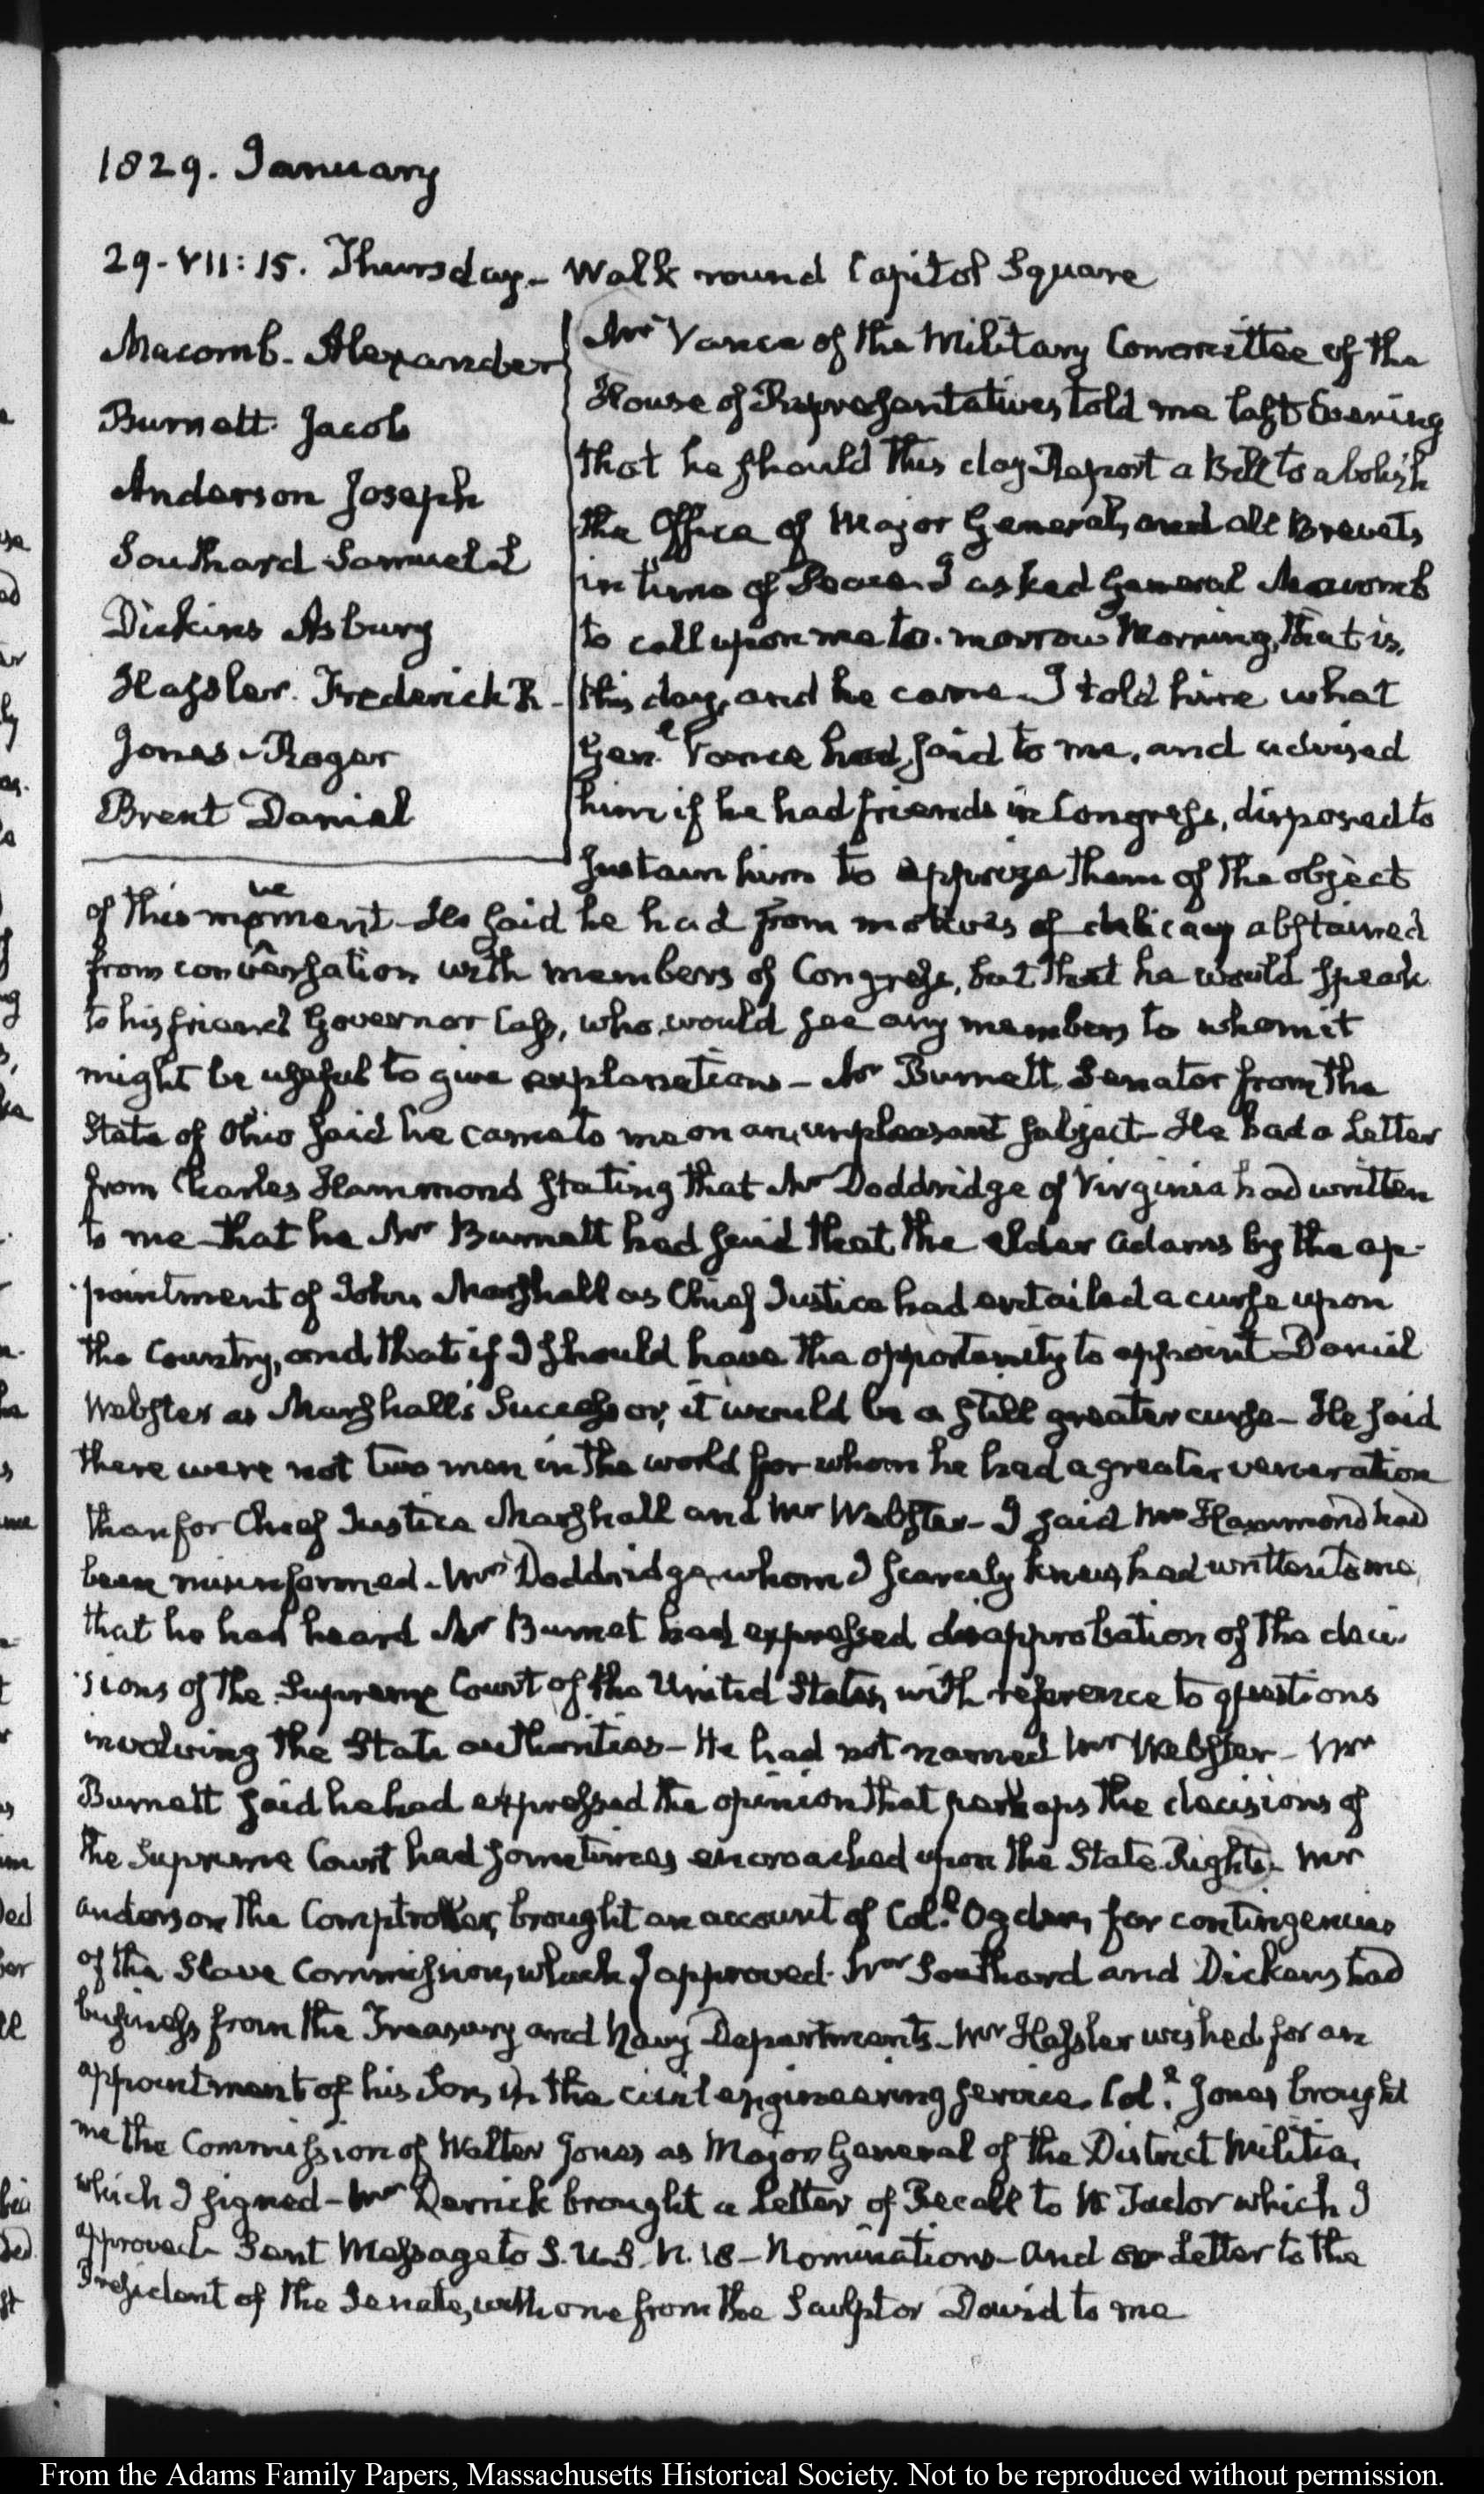 1829. January
29. VII:15. Thursday_ Walk round Capitol Square
Macomb. Alexander
Burnett. Jacob
Anderson Joseph
Southard Samuel L
Dickins Asbury
Hassler. Frederick R.
Jones. Roger
Brent Daniel
Mr Vance of the Military Committee of the
House of Representatives, told me last Evening
that he should this day Report a Bill to abolish
the Office of Major General, and all Brevets,
in time of Peace. I asked General Macomb
to call upon me to-morrow Morning, that is,
this day, and he came. I told him what
Genl. Vance had said to me, and advised
him if he had friends in Congress, disposed to
sustain him to apprize them of the object
of this movement. He said he had from motives of delicacy abstained
from conversation with members of Congress, but that he would speak
to his friend Governor Cass, who would see any members to whom it
might be useful to give explanations_ Mr Burnett, Senator from the
State of Ohio said he came to me on an unpleasant subject_ He had a Letter
from Charles Hammond stating that Mr Doddridge of Virginia had written
to me that he Mr Burnett had said that the elder Adams by the ap-
-pointment of John Marshall as Chief Justice had entailed a curse upon
the Country, and that if I should have the opportunity to appoint Daniel
Webster as Marshall's Successor, it would be a still greater curse_ He said
there were not two men in the world for whom he had a greater veneration
than for Chief Justice Marshall and Mr Webster_ I said Mr Hammond had
been misinformed. Mr Doddridge, whom I scarcely knew, had written to me,
that he had heard Mr Burnet had expressed disapprobation of the deci-
-sions of the Supreme Court of the United States, with reference to questions
involving the State authorities_ He had not named Mr Webster_ Mr
Burnett said he had expressed the opinion that perhaps the decisions of
the Supreme Court had sometimes encroached upon the State Rights_ Mr
Anderson the Comptroller, brought an account of Coll. Ogden, for contingencies
of the Slave Commission, which I approved. Mr Southard and Dickins had
business from the Treasury and Navy Departments_ Mr Hassler wished for an
appointment of his Son, in the civil engineering service. Coll. Jones brought
me the Commission of Walter Jones as Major General of the District Militia,
which I signed_ Mr Derrick brought a Letter of Recall to W Tudor which I
approved_ Sent Message to S.U.S. N. 18_ Nominations_ And a Letter to the
President of the Senate, with one from the Sculptor David to me
From the Adams Family Papers, Massachusetts Historical Society. Not to be reproduced without permission.